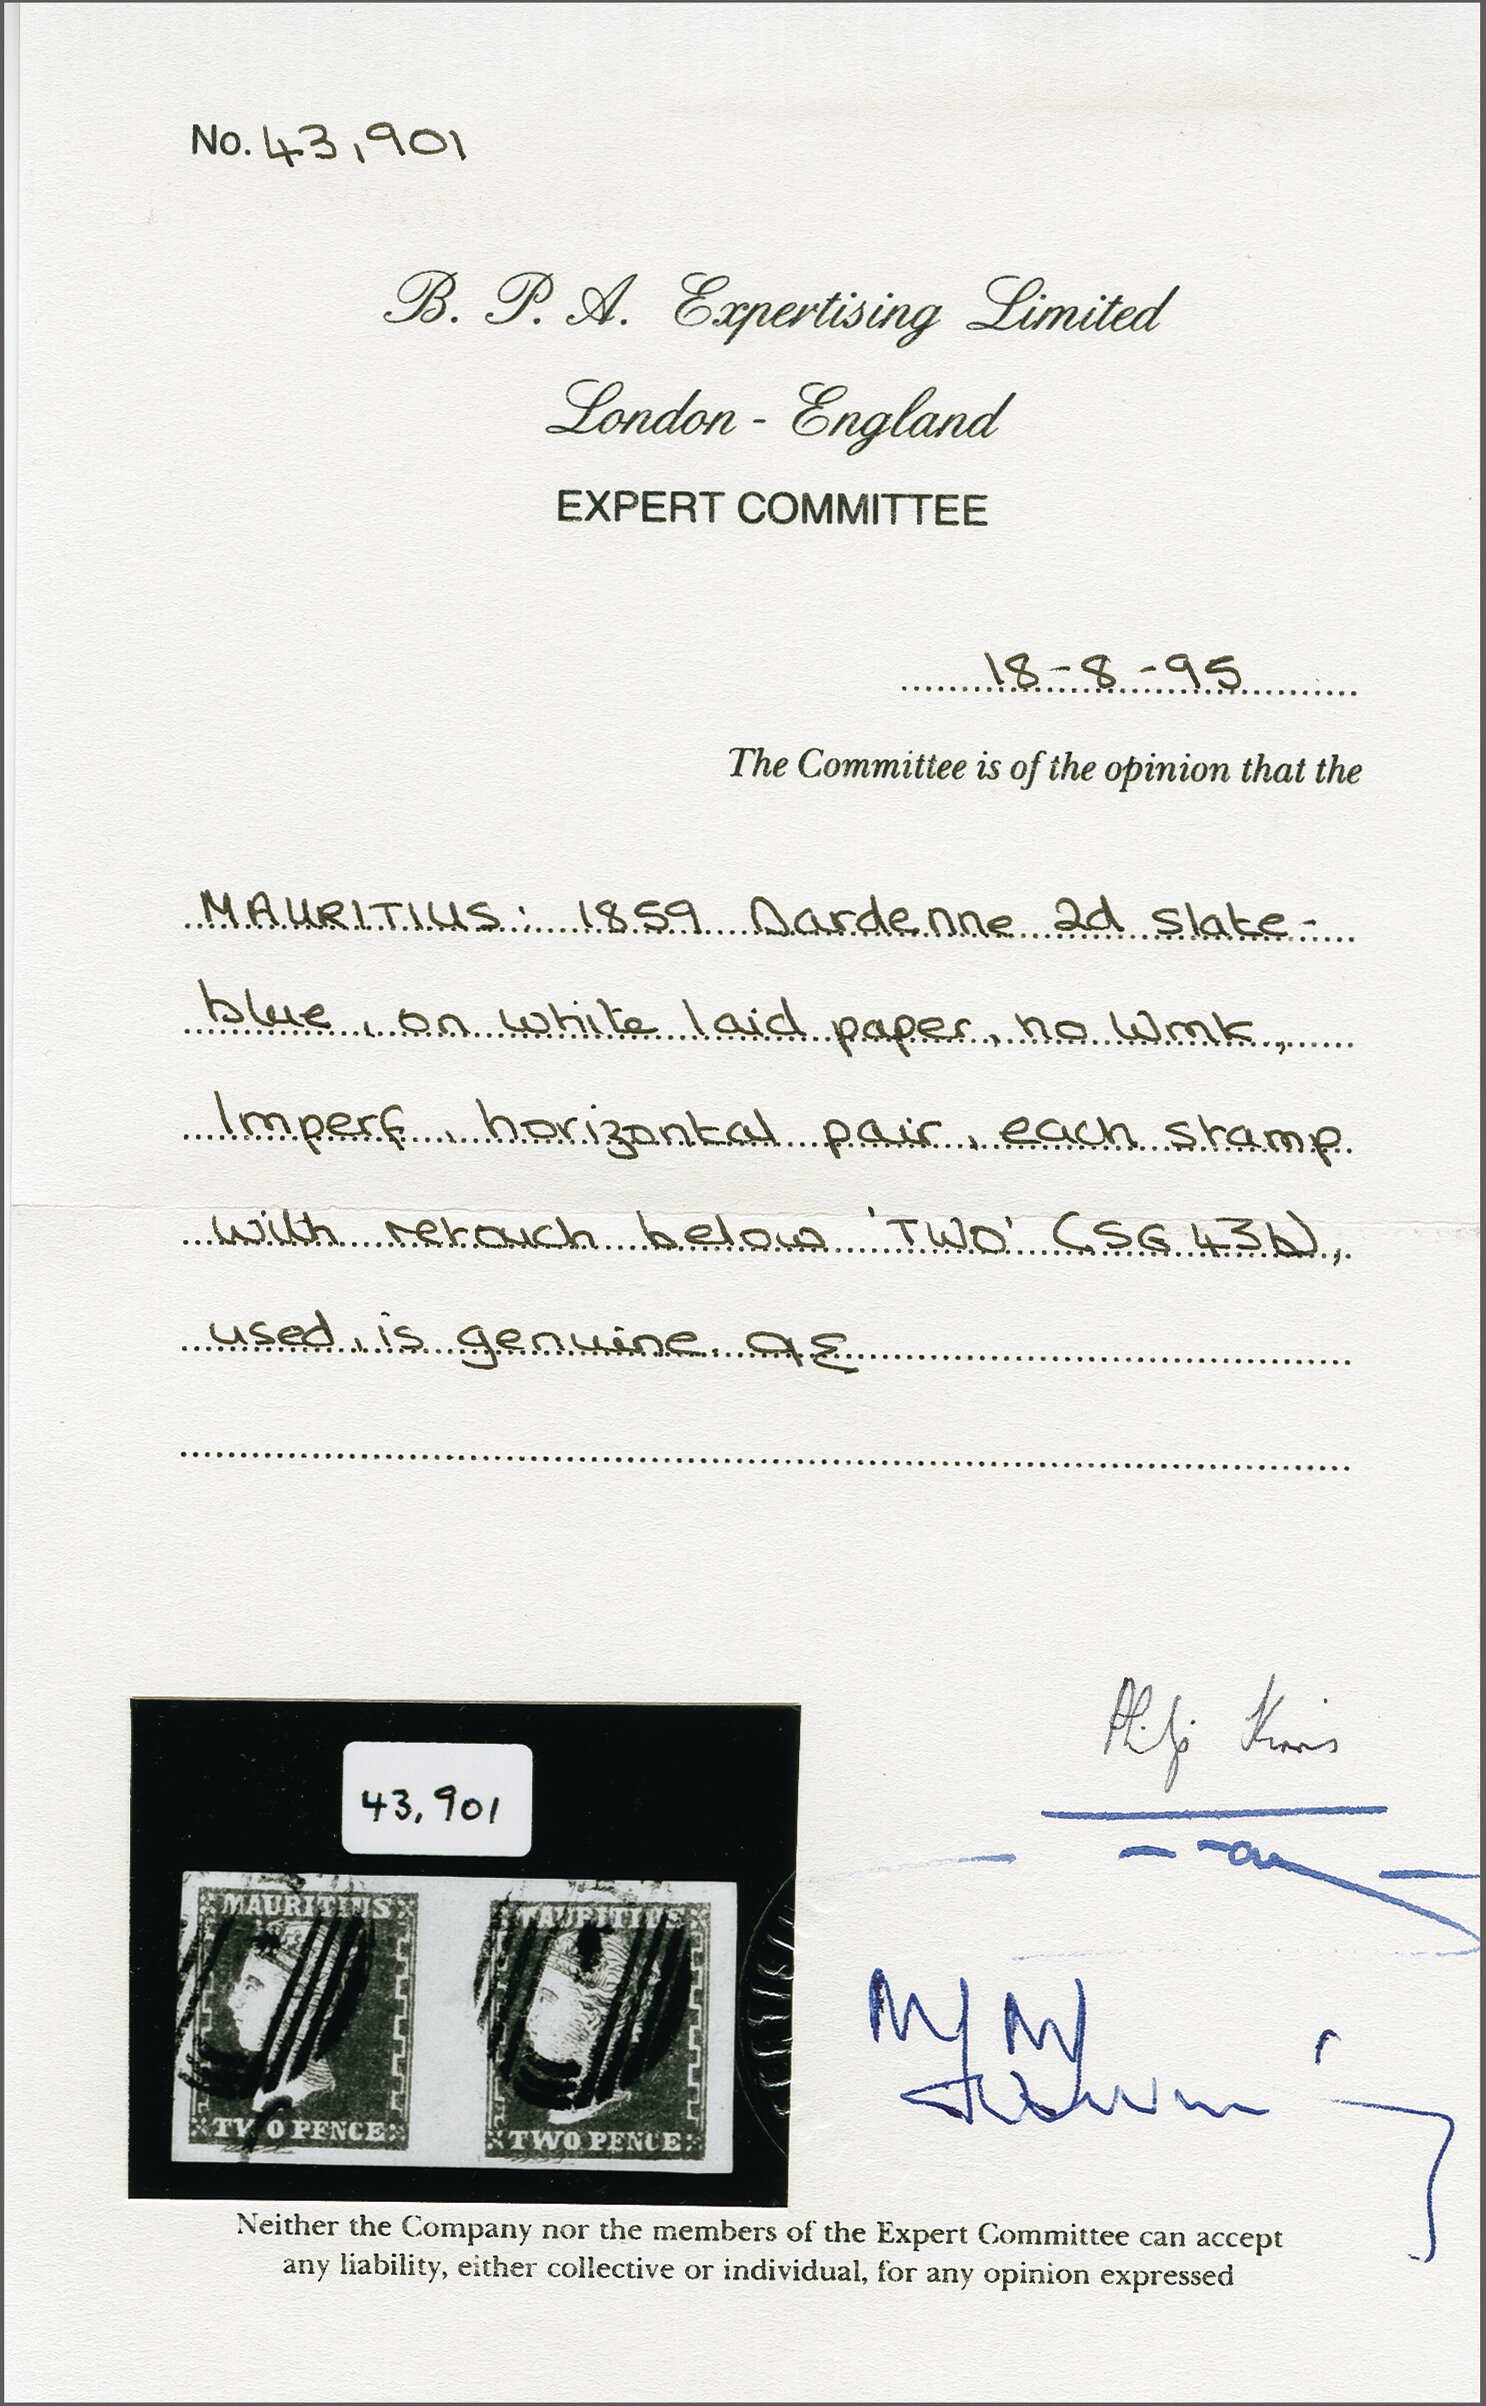 No. 43,901
B. P. A. Expertising Limited
London - England
EXPERT COMMITTEE
18-8-95
The Committee is of the opinion that the
MAURITIUS: 1859 Dardenne 2d slate-
blue, on white laid paper, no Wmk,
Imperf, horizontal pair, each stamp
with retouch below 'TWO' (SG 43b),
used, is genuine.
Philip Kinns
43,901
MAURITIUS MAURITIUS
TWO PENCE TWO PENCE
Neither the Company nor the members of the Expert Committee can accept
any liability, either collective or individual, for any opinion expressed